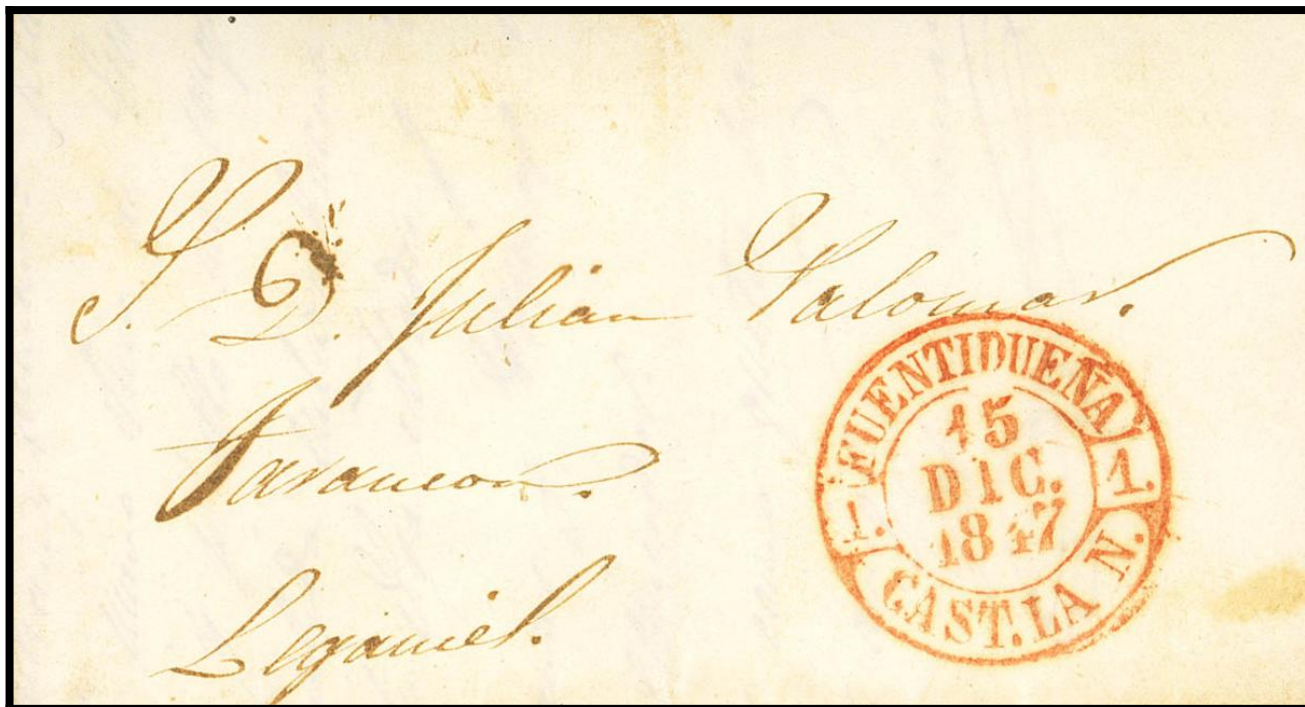 S. D. Julian Palomar.
Tarancon.
Leganiel.
FUENTIDUEÑA
1.
15
DIC.
1847
1.
CAST. LA N.